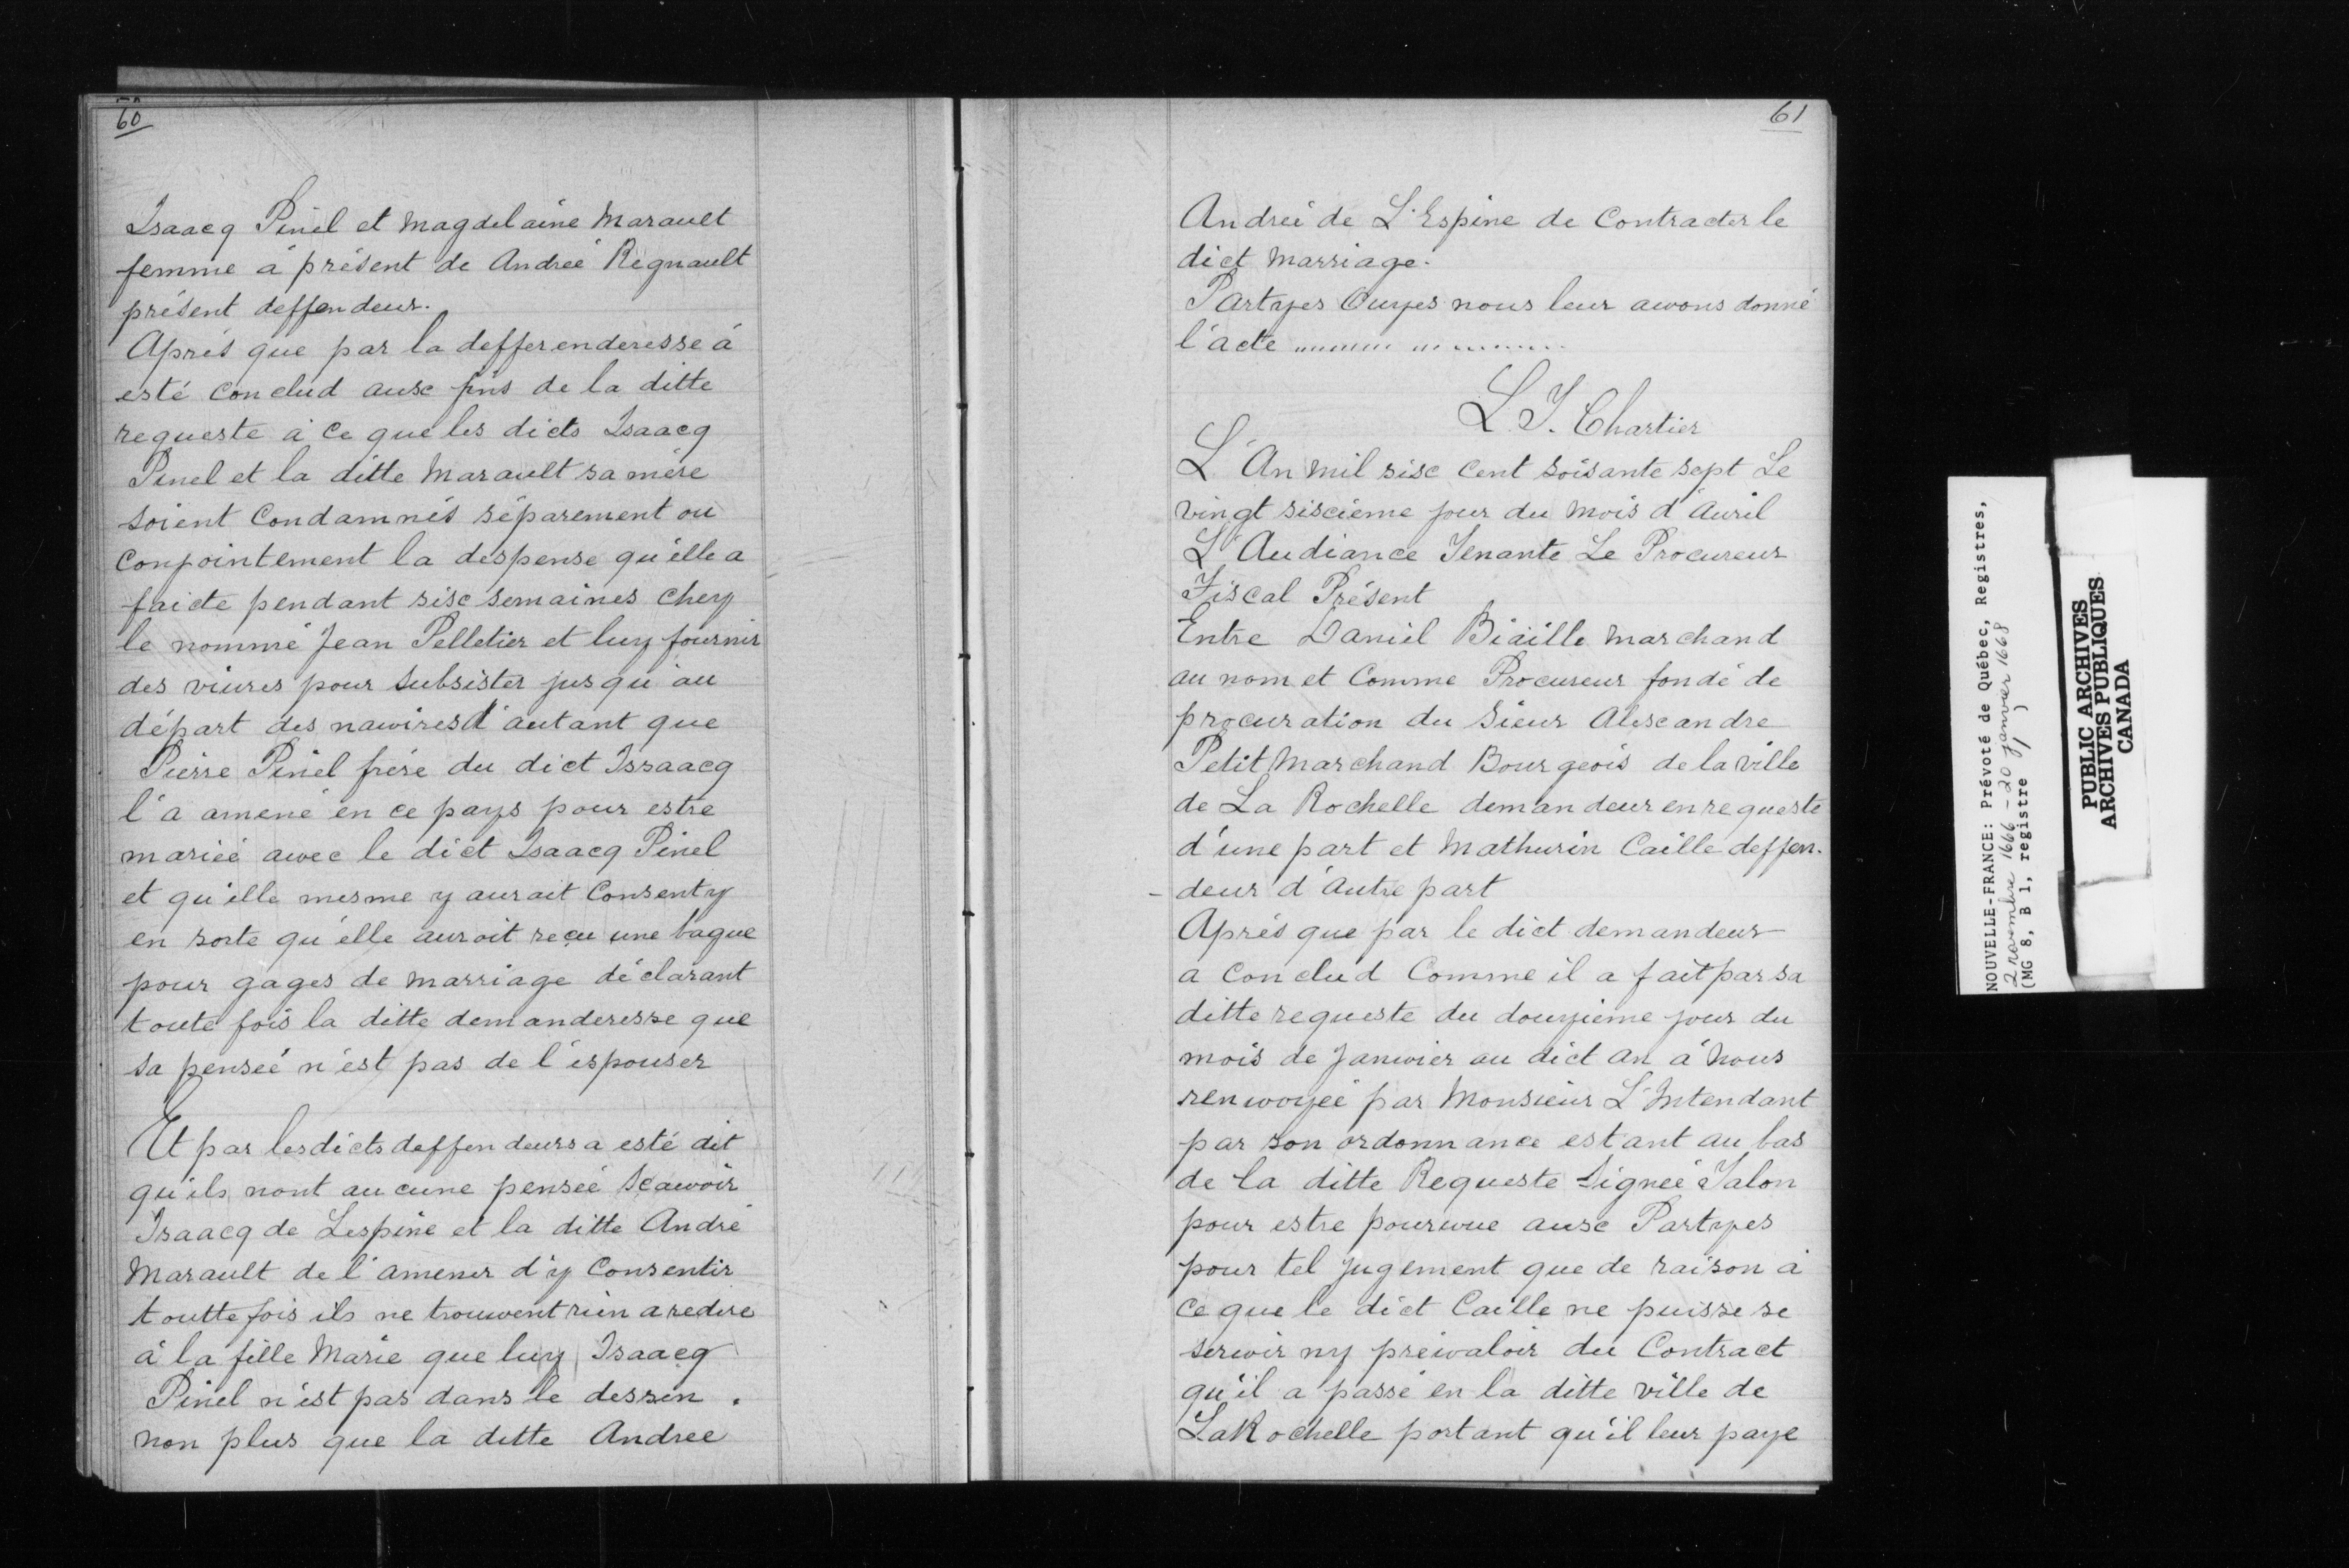 60
Isaacq Pinel et Magdelaine Marault
femme à présent de Andreé Regnault
présent deffendeur.
Aprés que par la defferenderesse à
esté conclud ausc fins de la ditte
requeste à ce que les dicts Isaacq
Pinel et la ditte Marault sa mère
soient Condamnés séparement ou
conjointement la despense qu'elle a
faicte pendant sisc semaines chey
le nommé Jean Pelletier et luy fournir
des viures pour subsister jusqu'au
départ des nawires d'autant que
Pierre Pinel frère du dict Issaacq
l'a amené en ce pays pour estre
marieé awec le dict Isaacq Pinel
et qu'elle mesme y aurait Consenty
en sorte qu'elle auroit reçu une bague
pour gages de marriage déclarant
toute fois la ditte demanderesse que
sa penseé n'est pas de l'espouser
Et par les dicts deffendeurs a esté dit
qu'ils nont aucune penseé scawoir
Isaacq de Lespine et la ditte André
Marault de l'amener d'y Consentir
touttefois ils ne trouwent rien a redire
à la fille Marie que luy Isaacq
Pinel n'est pas dans le dessen.
non plus que la ditte Andree
61
Andreé de L'Espine de Contracter le
dict Marriage.
Partyes Ouyes nous leur awons donné
l'acte ................
L. T. Chartier
L'An mil sisc Cent soisante sept Le
vingt siscième jour du mois d'Auril
L'Audiance Tenante Le Procureur
Fiscal Présent
Entre Daniel Biaille Marchand
au nom et Comme Procureur fondé de
procuration du Sieur Alescandre
Petit Marchand Bourgeois de la ville
de La Rochelle demandeur en requeste
d'une part et Mathurin Caille deffen-
- deur d'Autre part
Aprés que par le dict demandeur
a Conclud Comme il a fait par sa
ditte requeste du douyieme jour du
mois de Janwier au dict an à nous
renwoyeé par Monsieur L'Intendant
par son ordonnance estant au bas
de la ditte Requeste Signeé Talon
pour estre pourwue ausc Partyes
pour tel jugement que de raison à
ce que le dict Caille ne puisse se
serwir ny préwaloir du Contract
qu'il a passé en la ditte ville de
LaRochelle portant qu'il leur paye
NOUVELLE-FRANCE: Prévoté de Québec, Registres,
2 novembre 1666 - 20 janvier 1668
(MG 8, B 1, registre 1)
PUBLIC ARCHIVES
ARCHIVES PUBLIQUES
CANADA